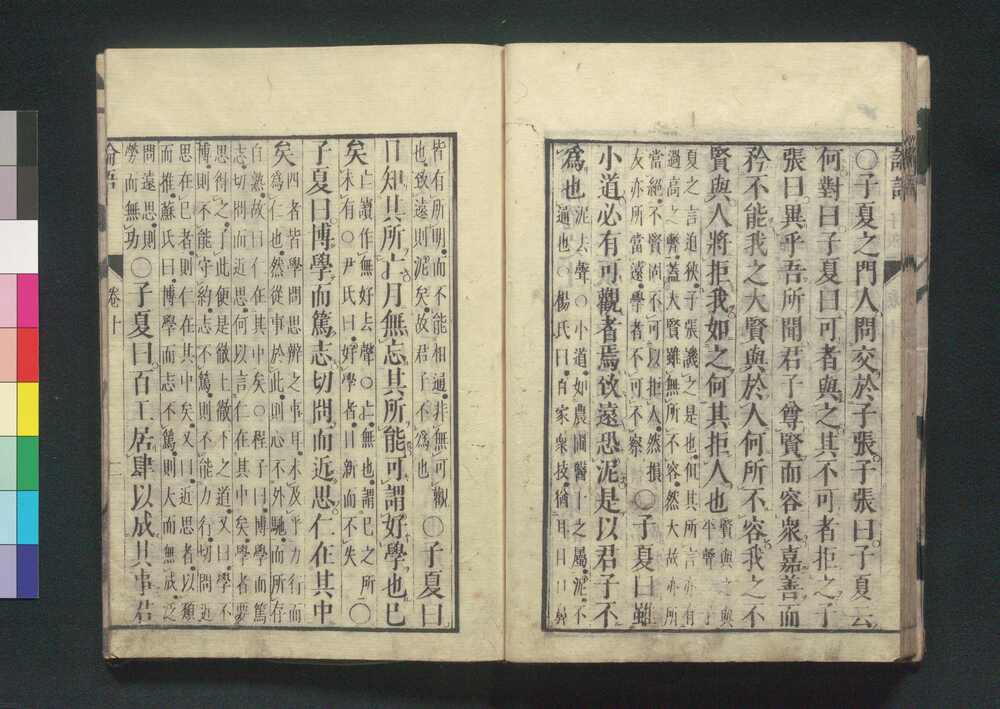 論語
〇子夏之門人問交於子張子張曰子夏云
何對曰子夏曰可者與之其不可者拒之子
張曰異乎吾所聞君子尊賢而容衆嘉善而
矜不能我之大賢與於人何所不容我之不
賢與人將拒我如之何其拒人也
賢與之與
平聲〇子
夏之言迫狹子張譏之是也但其所言亦有
過高之弊蓋大賢雖無所不容然大故亦所
當絶不賢固不可以拒人然損
友亦所當遠學者不可不察
〇子夏曰雖
小道必有可觀者焉致遠恐泥是以君子不
爲也
泥去聲〇小道如農圃醫卜之屬泥不
通也〇楊氏曰百家衆技猶耳目口鼻
皆有所明而不能相通非無可觀
也致遠則泥矣故君子不爲也
〇子夏曰
日知其所亡月無忘其所能可謂好學也已
矣
亡讀作無好去聲〇亡無也謂己之所
未有〇尹氏曰好學者日新而不失
〇
子夏曰博學而篤志切問而近思仁在其中
矣
四者皆學問思辨之事耳未及乎力行而
爲仁也然從事於此則心不外馳而所存
自熟故曰仁在其中矣〇程子曰博學而篤
志切問而近思何以言仁在其中矣學者要
思得之了此便是徹上徹下之道又曰學不
博則不能守約志不篤則不能力行切問近
思在己者則仁在其中矣又曰近思者以類
而推蘇氏曰博學而志不篤則大而無成泛
問遠思則
勞而無功
〇子夏曰百工居肆以成其事君
論語 卷十 二